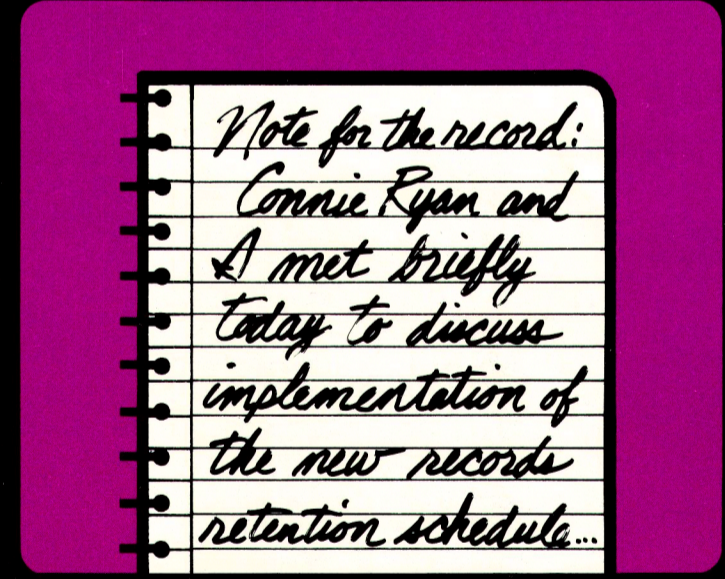 Note for the record:
Connie Ryan and
I met briefly
today to discuss
implementation of
the new records
retention schedule...